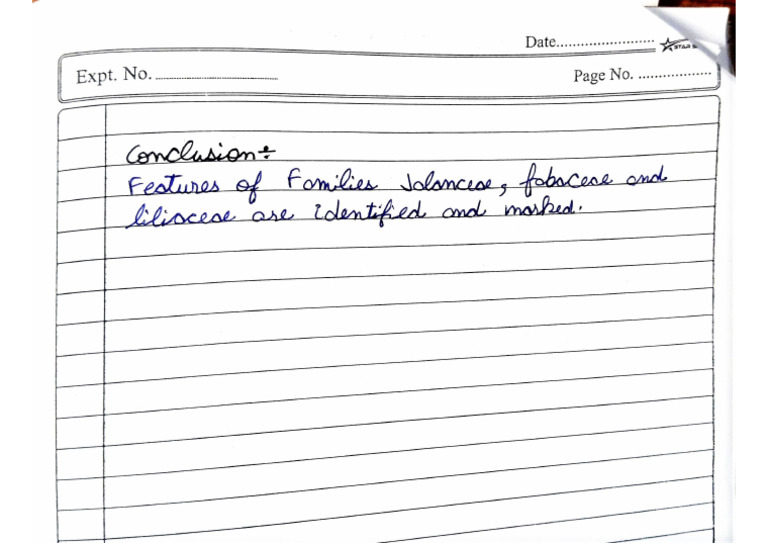 Date..........................
STAR
Expt. No. ....................................
Page No. ...................
Conclusion:-
Features of Families Jolanceae, fabaceae and
liliaceae are identified and marked.